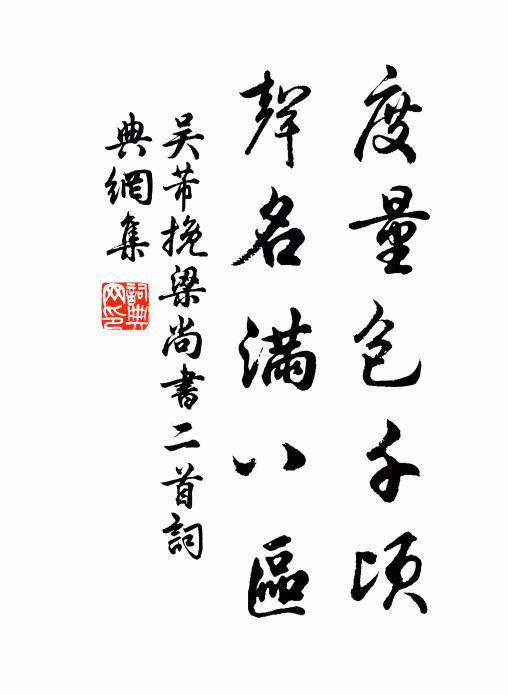 度量包千頃
聲名滿八區
吳芾挽梁尚書二首詞
典網集
詞典
网印